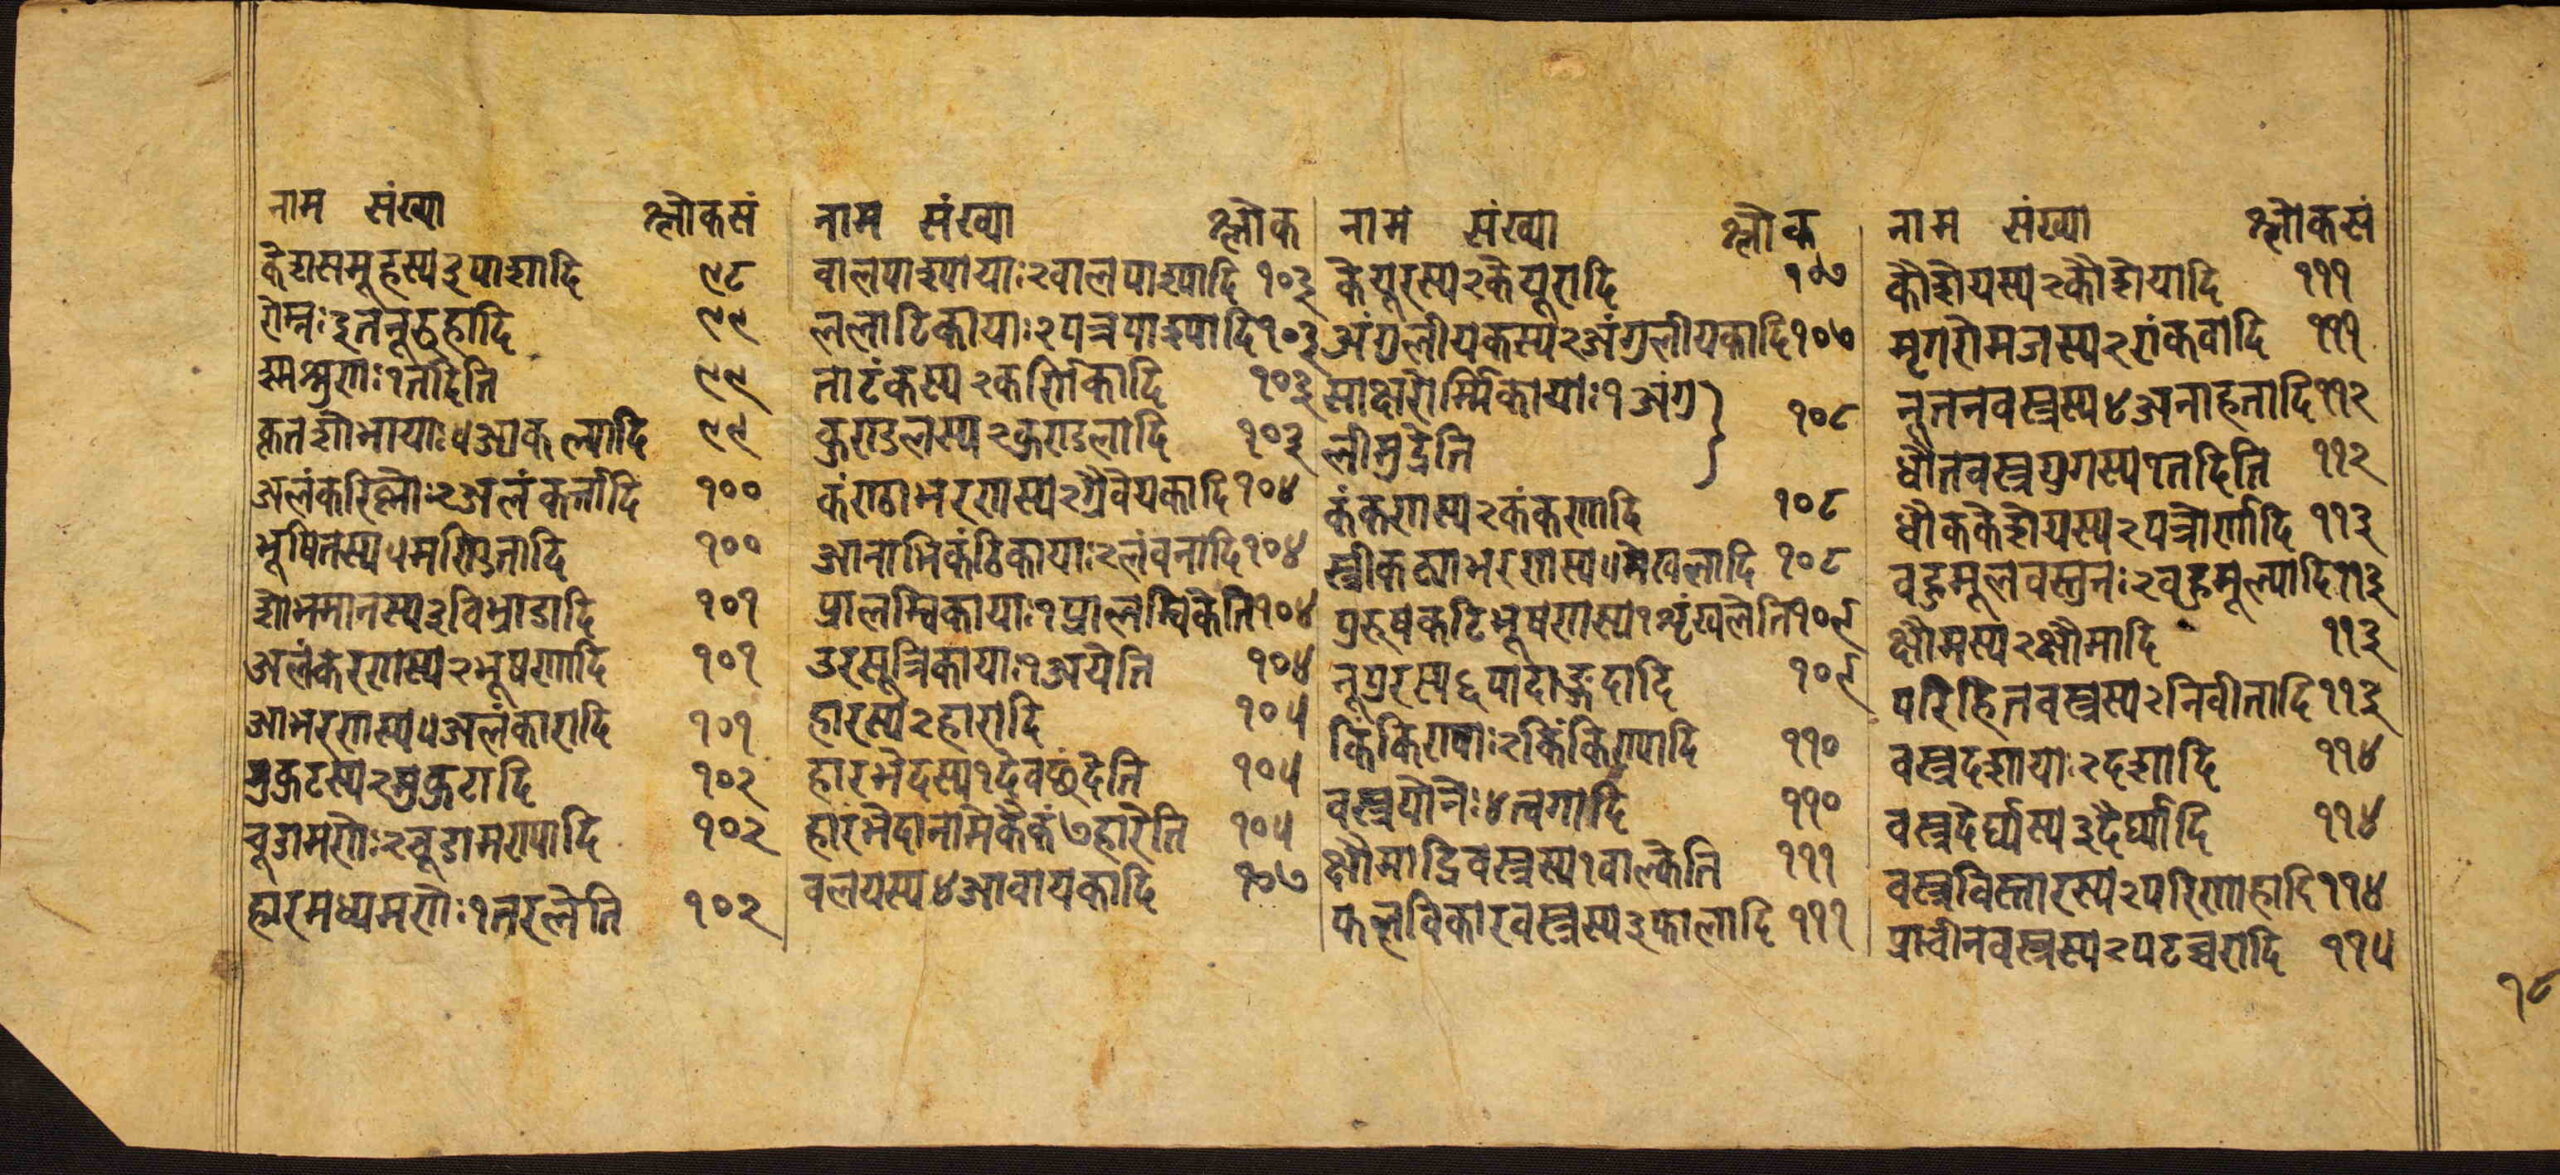 नाम संख्या श्लोकसं
केशसमूहस्य ३ पाशादि ९८
रोम्नः ३ तनूरुहादि ९९
श्मश्रुणः १ तदिति ९९
कृतशोभायाः ५ आकल्पादि ९९
अलंकरिष्णोः २ अलंकर्त्तादि १००
भूषितस्य ५ मण्डितादि १००
शोभमानस्य ३ विभ्राडादि १०१
अलंकरणस्य २ भूषणादि १०१
आभरणस्य ५ अलंकारादि १०१
मुकुटस्य २ मुकुटादि १०२
चूडामणेः २ चूडामण्यादि १०२
हारमध्यमणेः १ तरलेति १०२
नाम संख्या श्लोक
वालपाश्यायाः २ वालपाश्यादि १०३
ललाटिकायाः २ पत्रपाश्यादि १०३
ताटंकस्य २ कर्णिकादि १०३
कुण्डलस्य २ कुण्डलादि १०३
कंण्ठाभरणस्य २ ग्रैवेयकादि १०४
आनाभिकंठिकायाः २ लंवनादि १०४
प्रालम्विकायाः १ प्रालम्विकेति १०४
उरसूत्रिकायाः १ अयेति १०४
हारस्य २ हारादि १०५
हारभेदस्य १ देवछंदेति १०५
हारभेदानामेकैकं ७ हारेति १०५
वलयस्य ४ आवायकादि १०७
नाम संख्या श्लोक
केयूरस्य २ केयूरादि १०७
अंगुलीयकस्य २ अंगुलीयकादि १०७
साक्षरोर्म्मिकायाः १ अंगु
लीमुद्रेति १०८
कंकणस्य २ कंकणादि १०८
स्त्रीकट्याभरणस्य ५ मेखलादि १०८
पुरूषकटिभूषणस्य १ शृंखलेति १०९
नूपुरस्य ६ पादाङ्गदादि १०९
किंकिण्याः २ किंकिण्यादि ११०
वस्त्रयोनेः ४ त्वगादि ११०
क्षौमादिवस्त्रस्य १ वाल्केति १११
फलविकारवस्त्रस्य ३ फालादि १११
नाम संख्या श्लोकसं
कौशेयस्य २ कौशेयादि १११
मृगरोमजस्य २ रांकवादि १११
नूतनवस्त्रस्य ४ अनाहतादि ११२
धौतवस्त्रयुगस्य १ तदिति ११२
धौककेशेयस्य २ पत्रोर्णादि ११३
वहुमूलवस्तुनः २ वहुमूल्यादि ११३
क्षौमस्य २ क्षौमादि ११३
परिहितवस्त्रस्य २ निवीतादि ११३
वस्त्रदशायाः २ दशादि ११४
वस्त्रदैर्घ्यस्य ३ दैर्घ्यादि ११४
वस्त्रविस्तारस्य २ परिणाहादि ११४
प्राचीनवस्त्रस्य २ पटच्चरादि ११५
१८